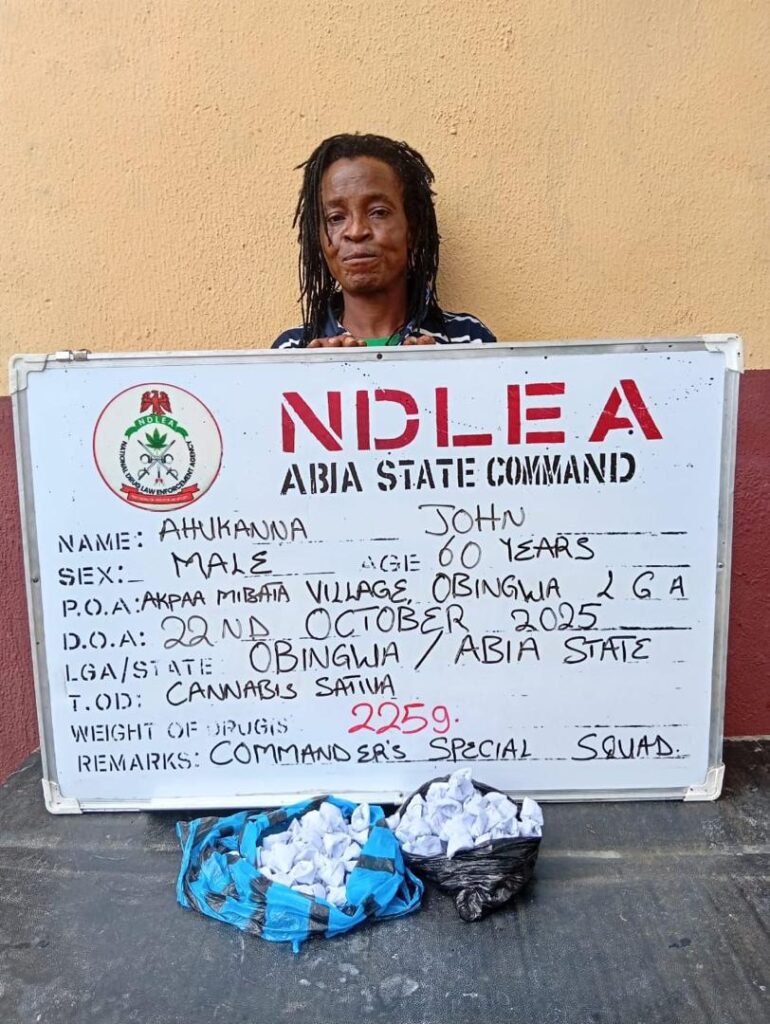 NDLEA
NATIONAL DRUG LAW ENFORCEMENT AGENCY
NDLEA
ABIA STATE COMMAND
NAME: AHUKANNA JOHN
SEX: MALE AGE 60 YEARS
P.O.A: AKPAA MIBATA VILLAGE, OBINGWA L G A
D.O.A: 22ND OCTOBER 2025
LGA/STATE: OBINGWA / ABIA STATE
T.OD: CANNABIS SATIVA
WEIGHT OF DRUGS: 2259.
REMARKS: COMMANDER'S SPECIAL SQUAD.